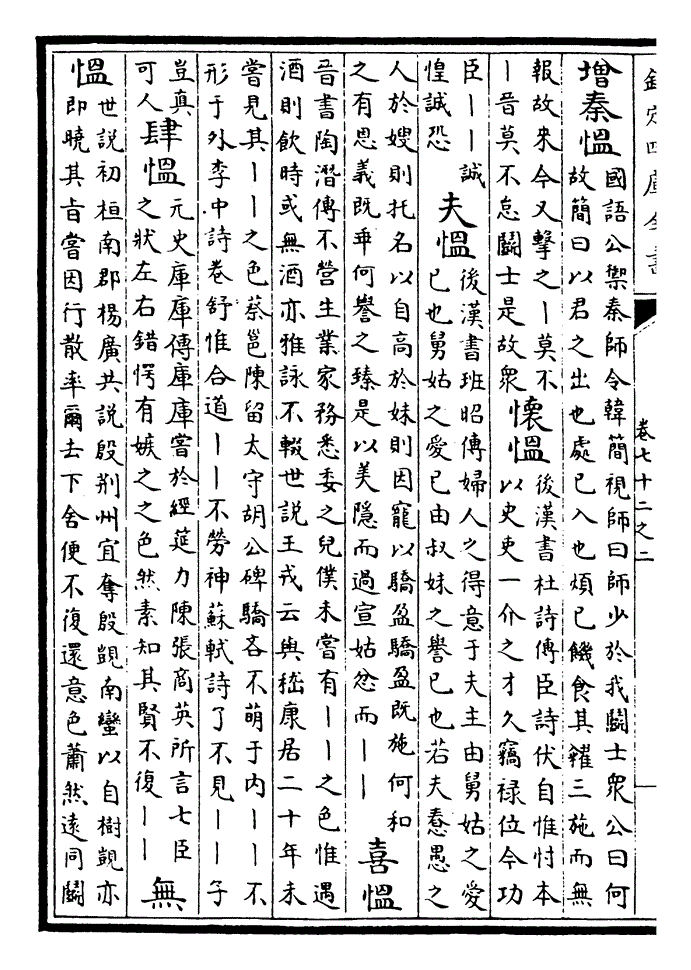 欽定四庫全書 卷七十二之二 一
增秦愠
國語公禦秦師令韓簡視師曰師少於我鬭士衆公曰何
故簡曰以君之出也處已入也煩已饑食其糴三施而無
報故來今又擊之丨莫不
丨晉莫不怠鬭士是故衆
懷愠
後漢書杜詩傳臣詩伏自惟忖本
以史吏一介之才久竊祿位令功
臣丨丨誠
惶誠恐
夫愠
後漢書班昭傳婦人之得意于夫主由舅姑之愛
已也舅姑之愛已由叔妹之譽已也若夫惷愚之
人於嫂則托名以自高於妹則因寵以驕盈驕盈既施何和
之有恩義既乖何譽之臻是以美隱而過宣姑忿而丨丨
喜愠
晉書陶潛傳不營生業家務悉委之兒僕未嘗有丨丨之色惟遇
酒則飲時或無酒亦雅詠不輟世説王戎云與嵇康居二十年未
嘗見其丨丨之色蔡邕陳留太守胡公碑驕吝不萌于内丨丨不
形于外李中詩卷舒惟合道丨丨不勞神蘇軾詩了不見丨丨子
豈真
可人
肆愠
元史庫庫傳庫庫嘗於經筵力陳張商英所言七臣
之狀左右錯愕有嫉之之色然素知其賢不復丨丨
無
愠
世説初桓南郡楊廣共説殷荆州宜奪殷覬南蠻以自樹覬亦
即曉其旨嘗因行散率爾去下舍便不復還意色蕭然遠同鬭